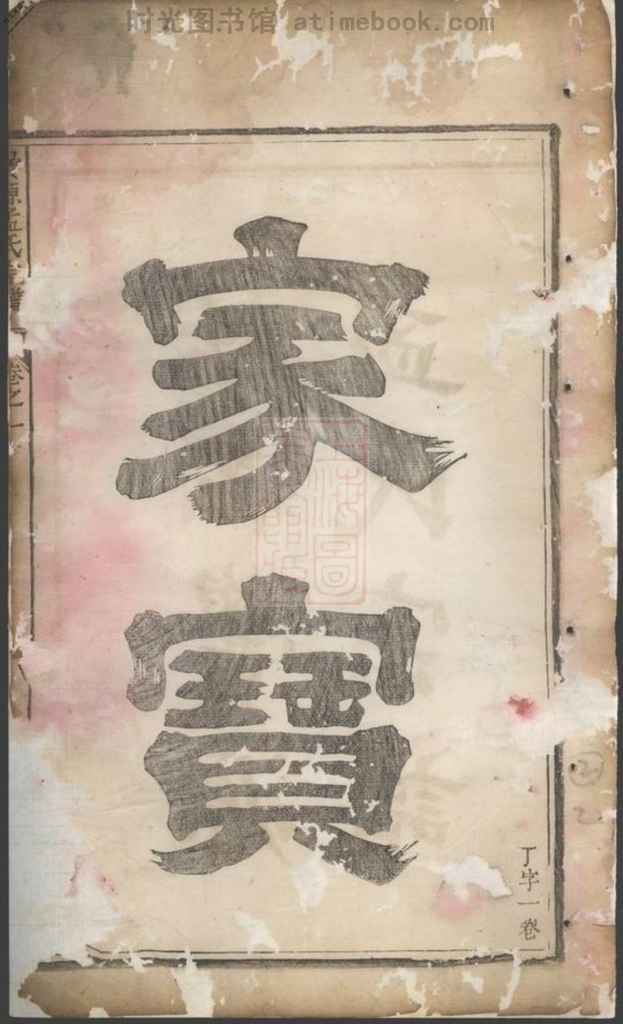 时光图书馆 atimebook.com
家
寳
丁字一卷
卷之一